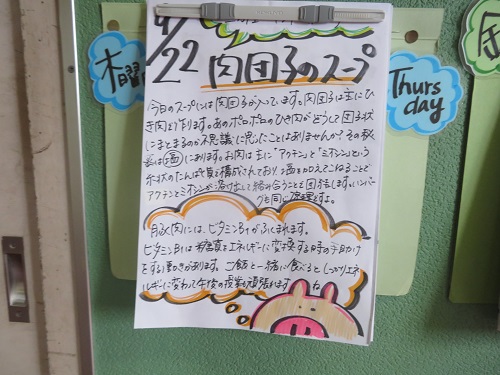 4/22
肉団子のスープ
今日のスープには肉団子が入っています。肉団子は主にひ
き肉で作ります。あのポロポロのひき肉がどうして団子状
にまとまるのか不思議に思ったことはありませんか?その秘
密は塩にあります。お肉は主に「アクチン」と「ミオシン」という
糸状のたんぱく質で構成されており、塩を加えてこねることで
アクチンとミオシンが溶け出して絡み合うことで団結します。ハンバー
グも同じ原理ですよ。
豚ひく肉には、ビタミンB1がふくまれます。
ビタミンB1は糖質をエネルギーに変換する時の手助け
をする働きがあります。ご飯と一緒に食べると しっかりエネ
ルギーに変わって午後の授業も頑張れますね
木曜
Thurs
day